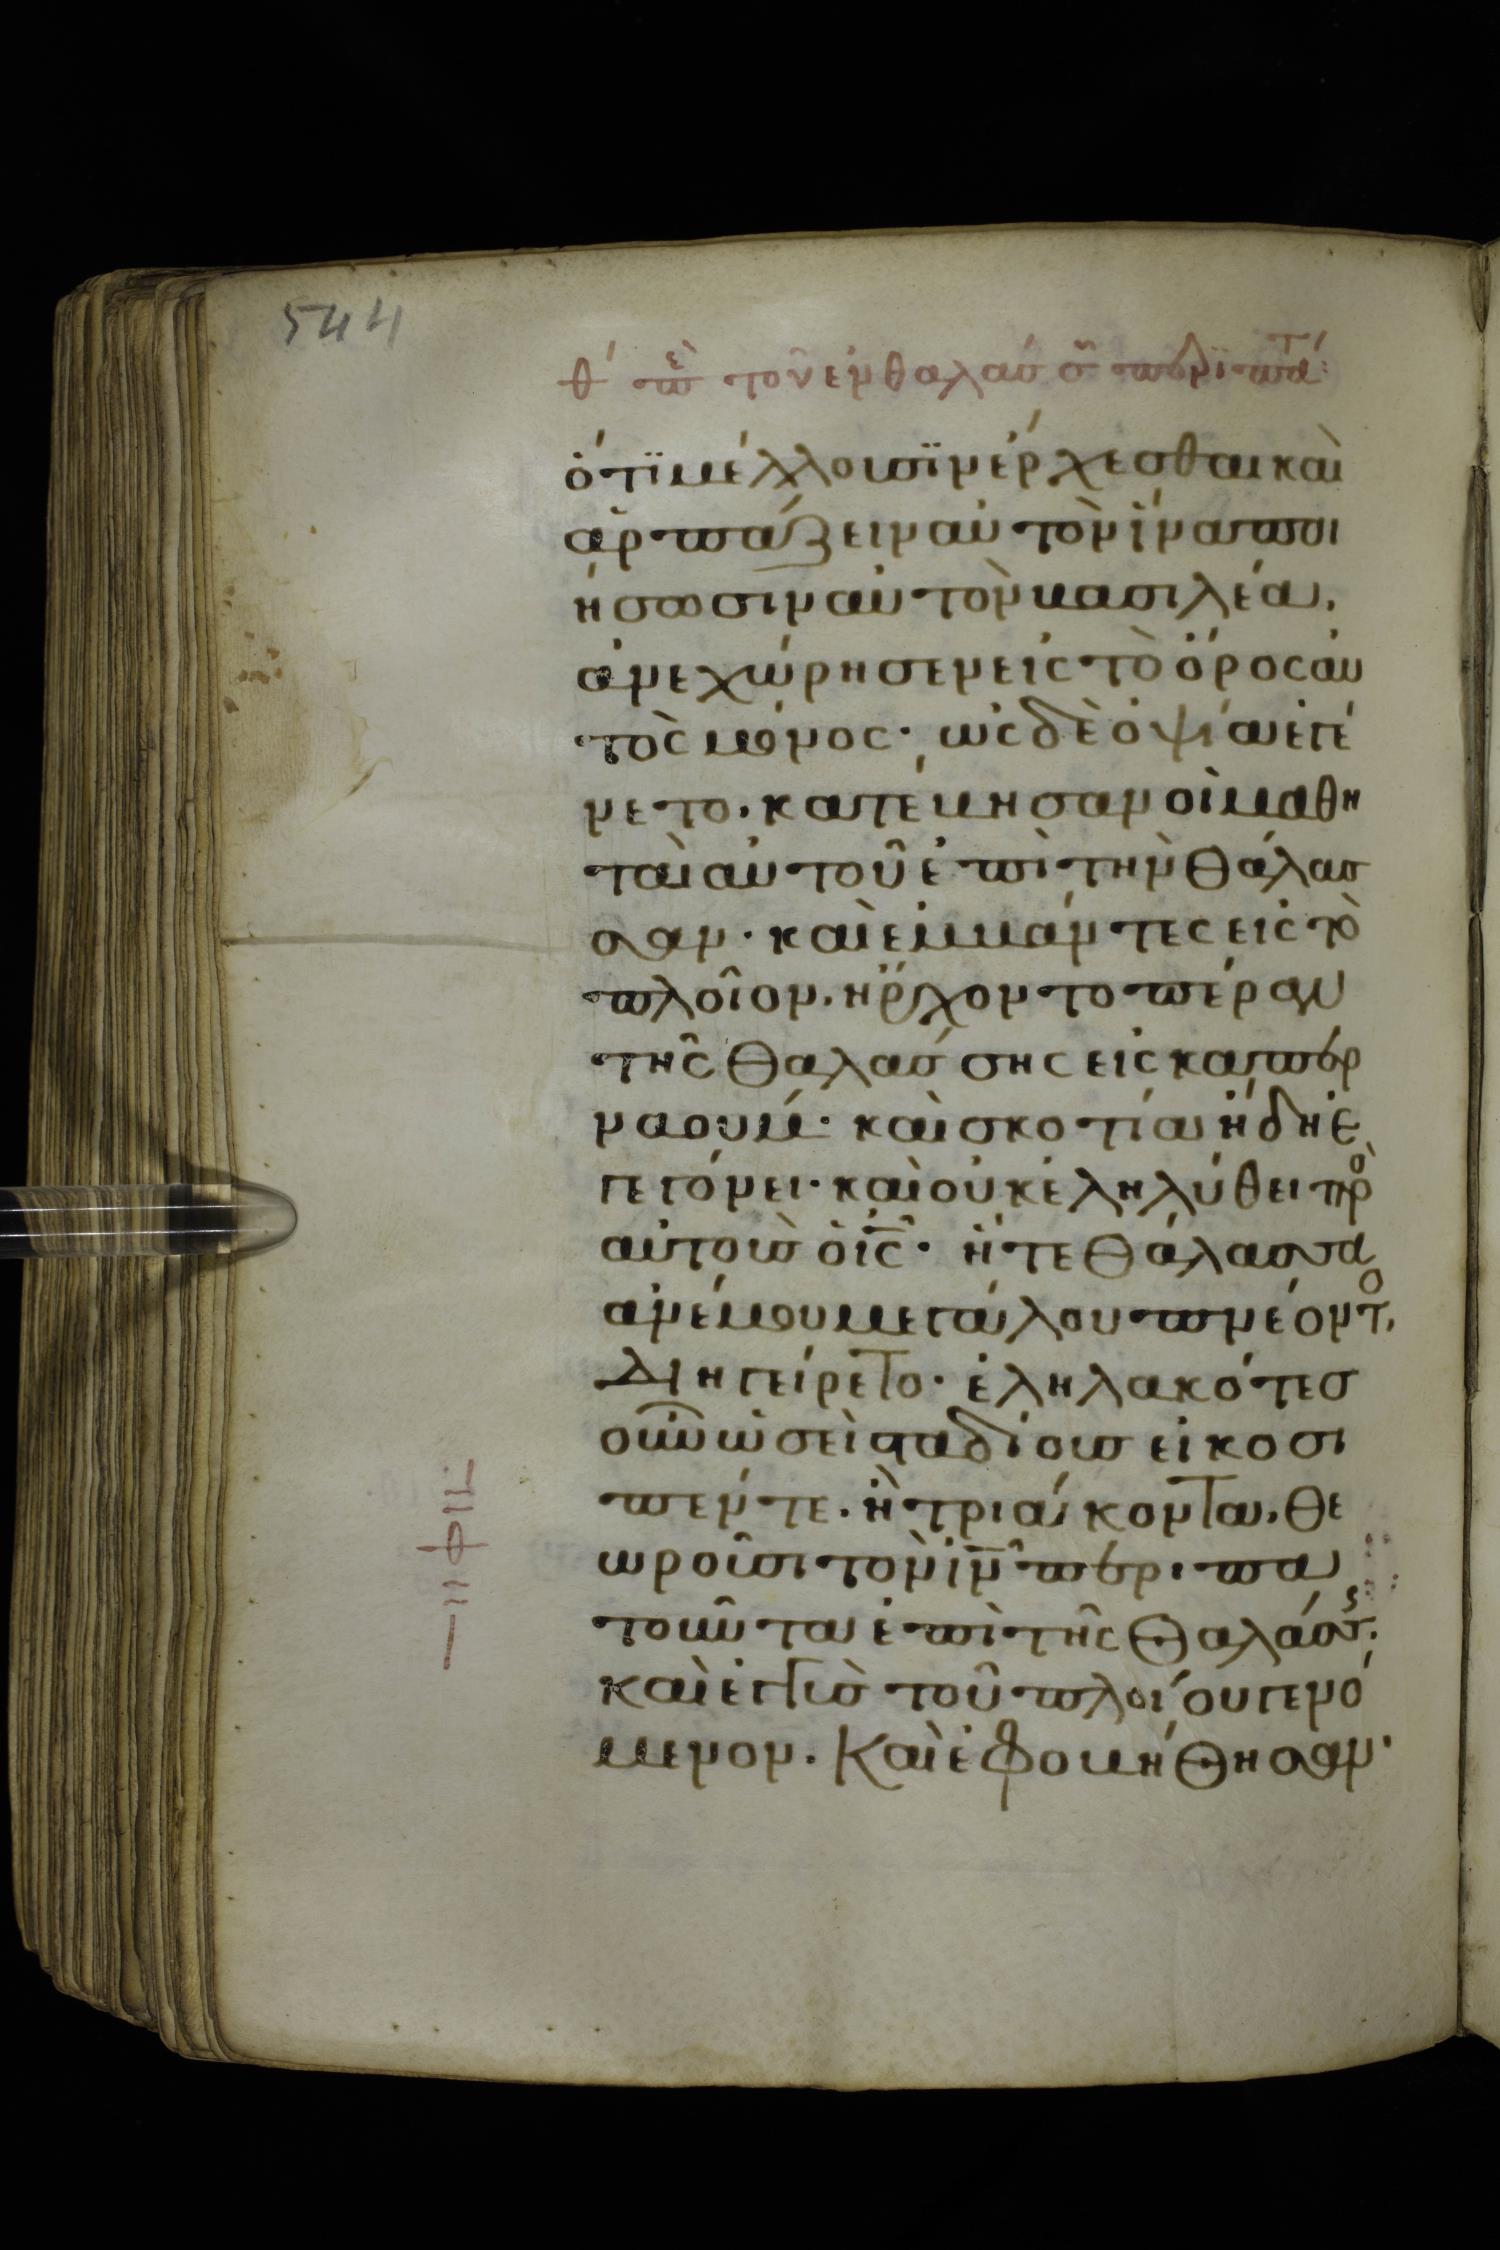 544
θ´ πε τοῦ ἐν θαλάσση περϊπάτ:
ὅτϊ μέλλουσϊν ἔρχεσθαι καὶ
ἁρπάζειν αὐτὸν ἵνα ποι
ήσωσιν αὐτὸν βασιλέα,
ἀνεχώρησεν εἰς τὸ ὄρος αὐ
τὸς μόνος· ὡς δὲ ὀψία ἐγέ
νετο, κατέβησαν οἱ μαθη
ταὶ αὐτοῦ ἐπὶ τὴν θάλασ
σαν· καὶ ἐμβάντες εἰς τὸ
πλοῖον, ἤρχοντο πέραν
τῆς θαλάσσης εἰς καπερ
ναούμ· καὶ σκοτία ἤδη ἐ
γεγόνει· καὶ οὐκ ἐληλύθει πρὸ
αὐτοὺσ ὁ ις· ἥ τε θάλασσα
ἀνέμου μεγάλου πνέοντο,
διηγείρετο· ἐληλακότεσ
οὖν ὡσεὶ σταδίουσ εἴκοσι
πέντε· ἢ τριάκοντα, θε
ωροῦσι τὸν ιν περιπα
τοῦντα ἐπὶ τῆς θαλάσσ·
καὶ ἐγγὺσ τοῦ πλοίου γενό
μενον· Καὶ ἐφοβήθησαν·